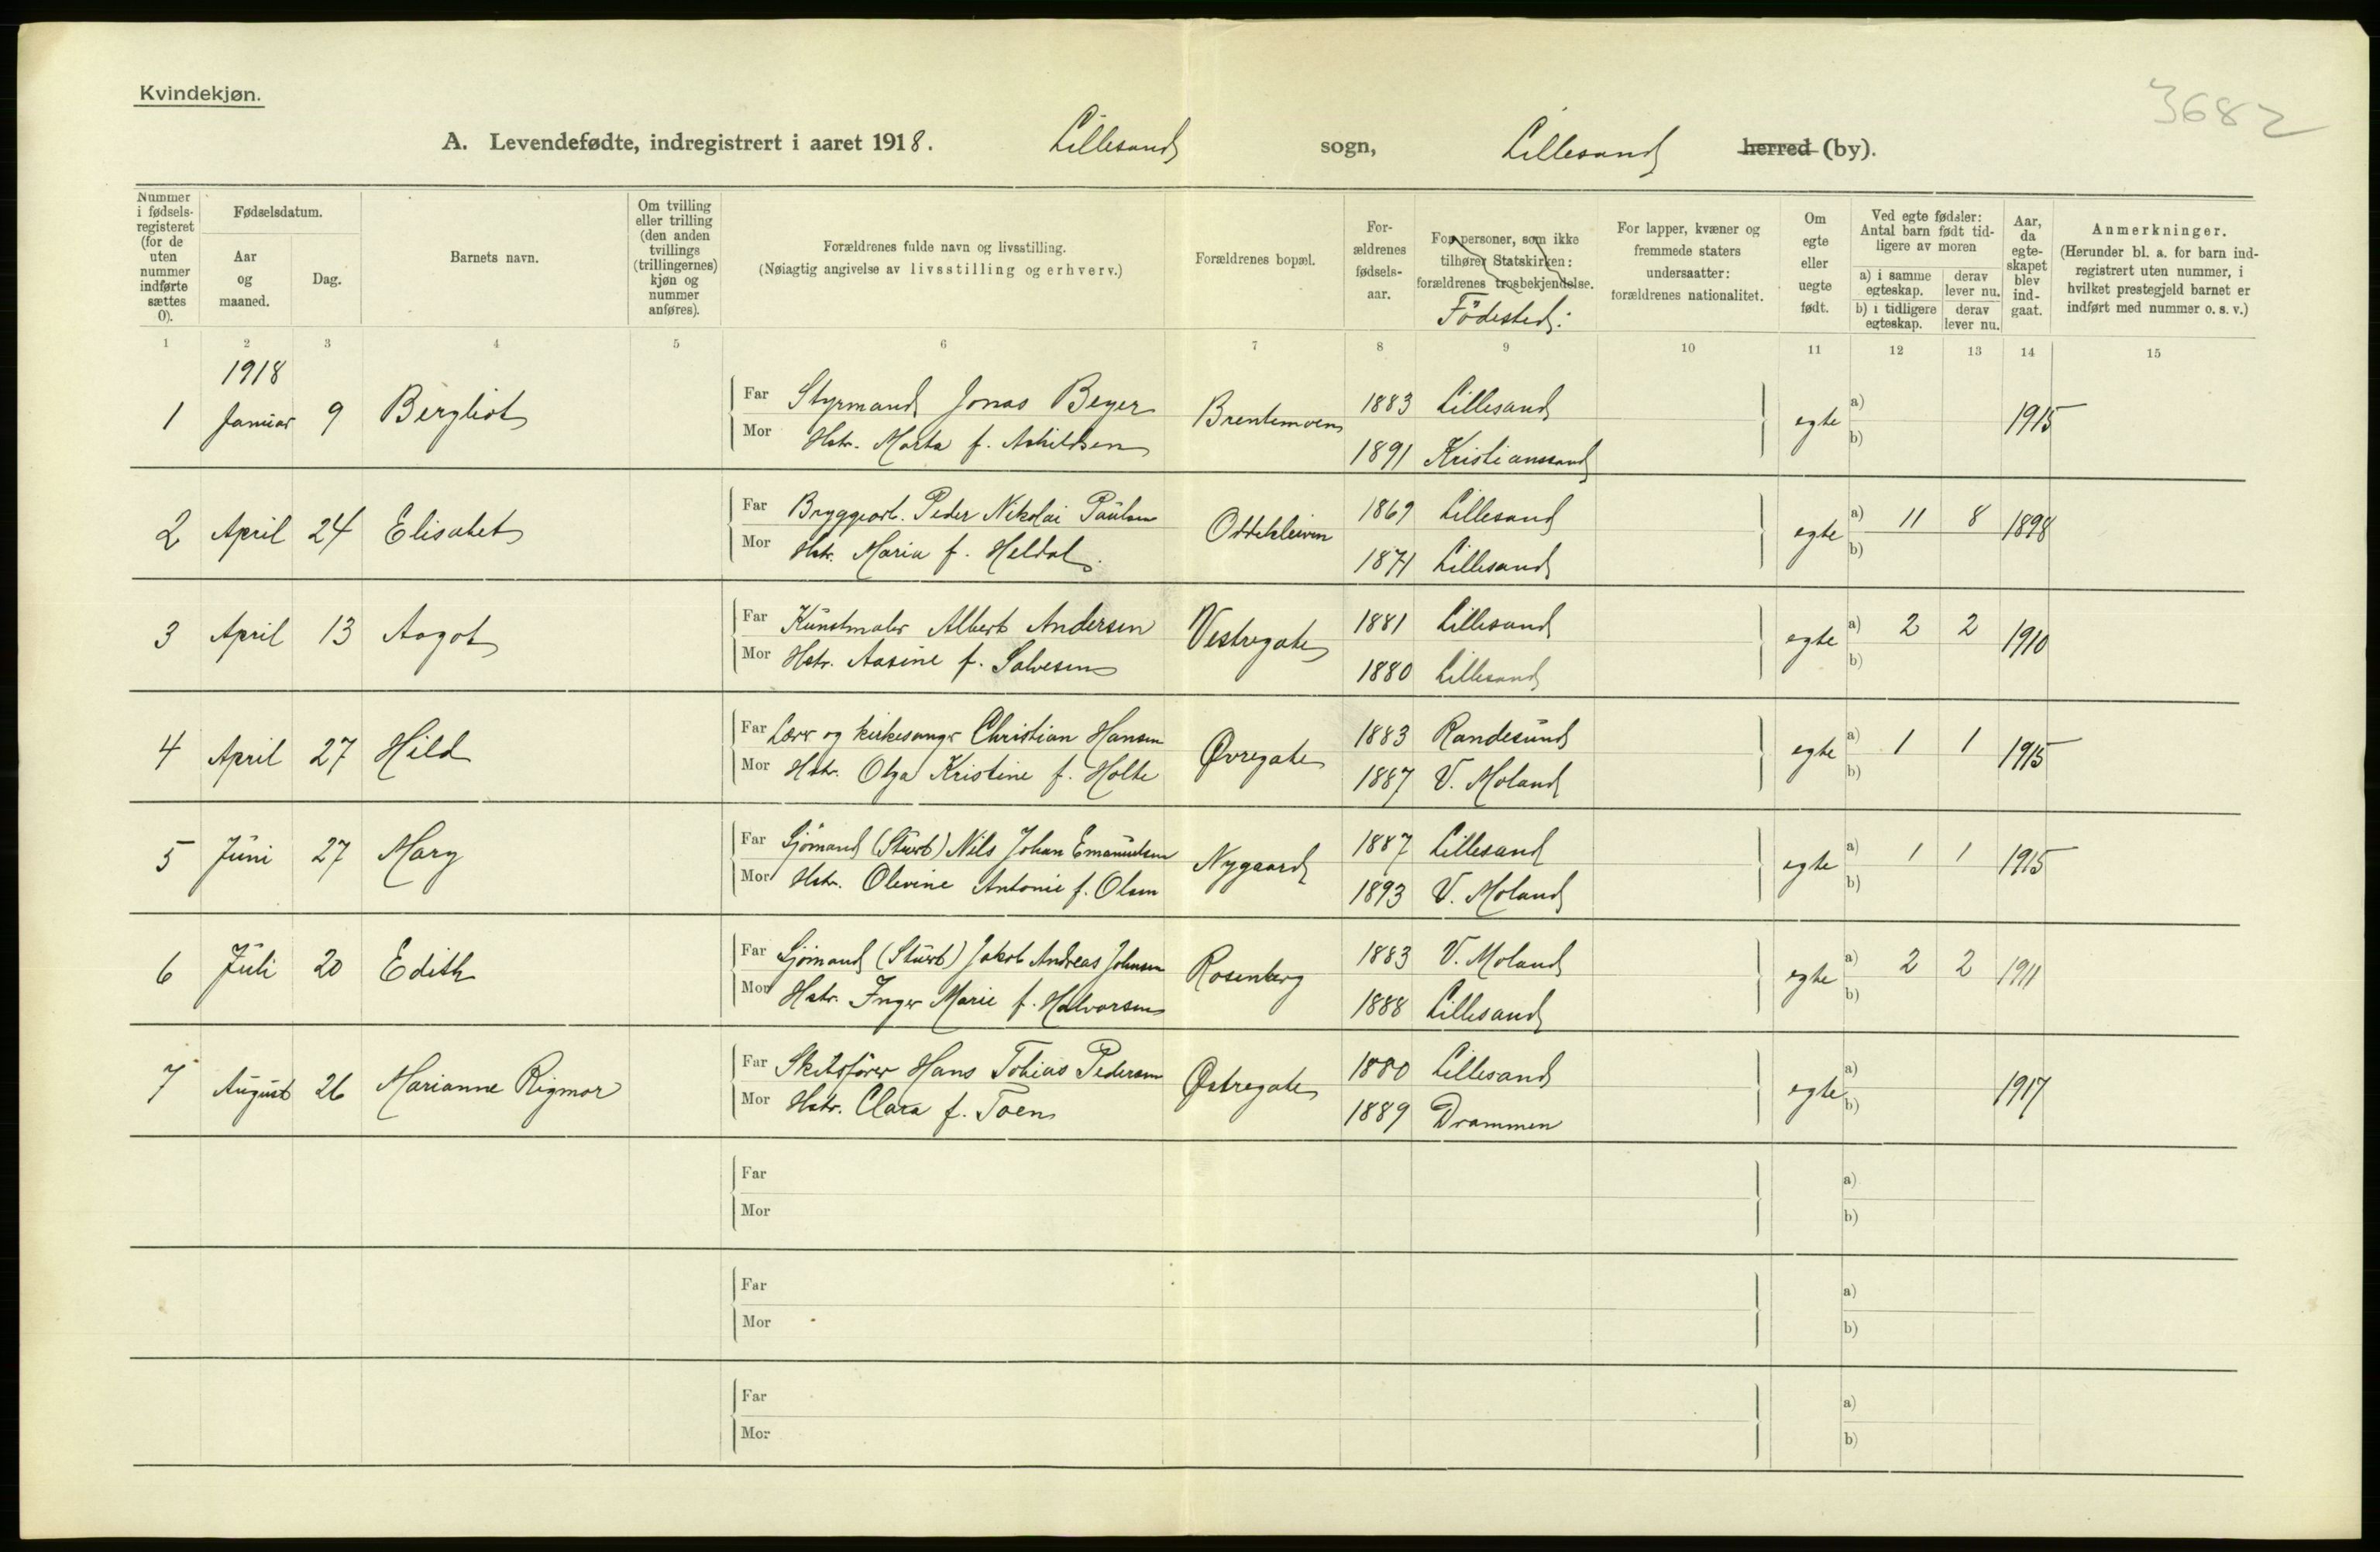 Kvindekjøn.
3682
A. Levendefødte, indregistrert i aaret 1918. Lillesand sogn, Lillesand herred (by).
Nummer i fødsels-registeret (for de uten nummer indførte sættes 0).
Fødselsdatum.
Aar og maaned.
Dag.
Barnets navn.
Om tvilling eller trilling (den anden tvillings (trillingernes) kjøn og nummer anføres).
Forældrenes fulde navn og livsstilling.
(Nøiagtig angivelse av livsstilling og erhverv.)
Forældrenes bopæl.
For-ældrenes fødsels-aar.
For personer, som ikke tilhører Statskirken: forældrenes trosbekjendelse.
Födested:
For lapper, kvæner og fremmede staters undersaatter: forældrenes nationalitet.
Om egte eller uegte født.
Ved egte fødsler: Antal barn født tid-ligere av moren
a) i samme egteskap. derav lever nu.
b) i tidligere egteskap. derav lever nu.
Aar, da egte-skapet blev ind-gaat.
Anmerkninger.
(Herunder bl. a. for barn ind-registrert uten nummer, i hvilket prestegjeld barnet er indført med nummer o. s. v.)
1 2 3 4 5 6 7 8 9 10 11 12 13 14 15
1918
1 Januar 9 Bergliot Far Styrmand Jonas Beyer Brentemoen 1883 Lillesand egte a) 1915
Mor Hstr. Marta f. Askildsen 1891 Kristianssand b)
2 April 24 Elisabet Far Bryggearb. Peder Nikolai Paulsen Oddekleiven 1869 Lillesand egte a) 11 8 1898
Mor Hstr. Maria f. Heldal. 1871 Lillesand b)
3 April 13 Aagot Far Kunstmaler Albert Andersen Vestregate 1881 Lillesand egte a) 2 2 1910
Mor Hstr. Aasine f. Salvesen 1880 Lillesand b)
4 April 27 Hild Far Lærer og kirkesanger Christian Hansen Øvregate 1883 Randesund egte a) 1 1 1915
Mor Hstr. Olga Kristine f. Holte 1887 V. Moland b)
5 Juni 27 Mary Far Sjömand (Stuert) Nils Johan Emanuelsen Nygaard 1887 Lillesand egte a) 1 1 1915
Mor Hstr. Olevine Antonie f. Olsen 1893 V. Moland b)
6 Juli 20 Edith Far Sjömand (Stuert) Jakob Andreas Johnsen Rosenberg 1883 V. Moland egte a) 2 2 1911
Mor Hstr. Inger Marie f. Halvorsen 1888 Lillesand b)
7 August 26 Marianne Rigmor Far Skibsfører Hans Tobias Pedersen Østregate 1880 Lillesand egte a) 1917
Mor Hstr. Clara f. Toen 1889 Drammen b)
Far a)
Mor b)
Far a)
Mor b)
Far a)
Mor b)